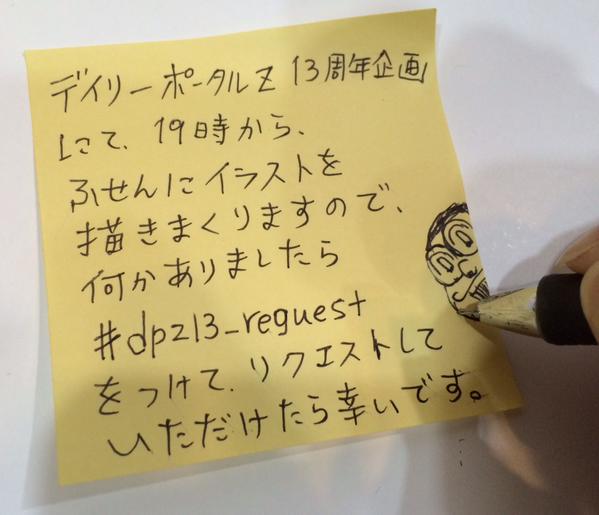 デイリーポータルZ 13周年企画
にて、19時から、
ふせんにイラストを
描きまくりますので、
何かありましたら
#dpz13_request
をつけて、リクエストして
いただけたら幸いです。